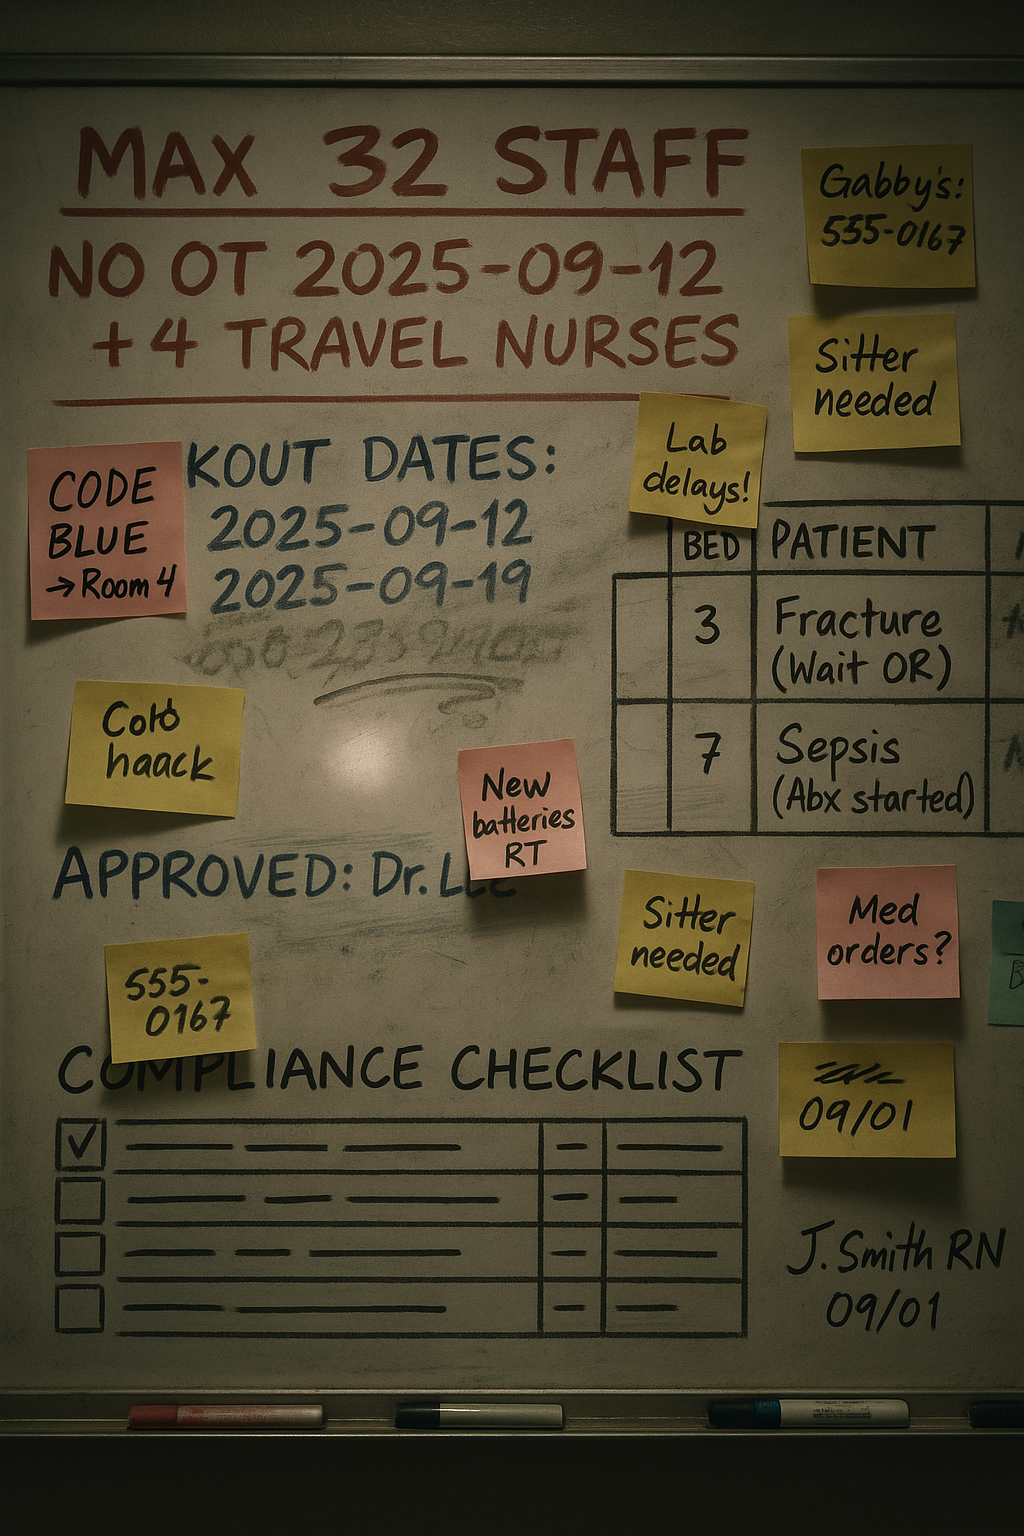 MAX 32 STAFF
NO OT 2025-09-12
+4 TRAVEL NURSES
Gabby's:
555-0167
Sitter
needed
Lab
delays!
CODE
BLUE
→Room 4
KOUT DATES:
2025-09-12
2025-09-19
BED PATIENT
3 Fracture
(Wait OR)
7 Sepsis
(Abx started)
haack
New
batteries
RT
APPROVED: Dr.
Sitter
needed
Med
orders?
555-
0167
COMPLIANCE CHECKLIST
09/01
J. Smith RN
09/01